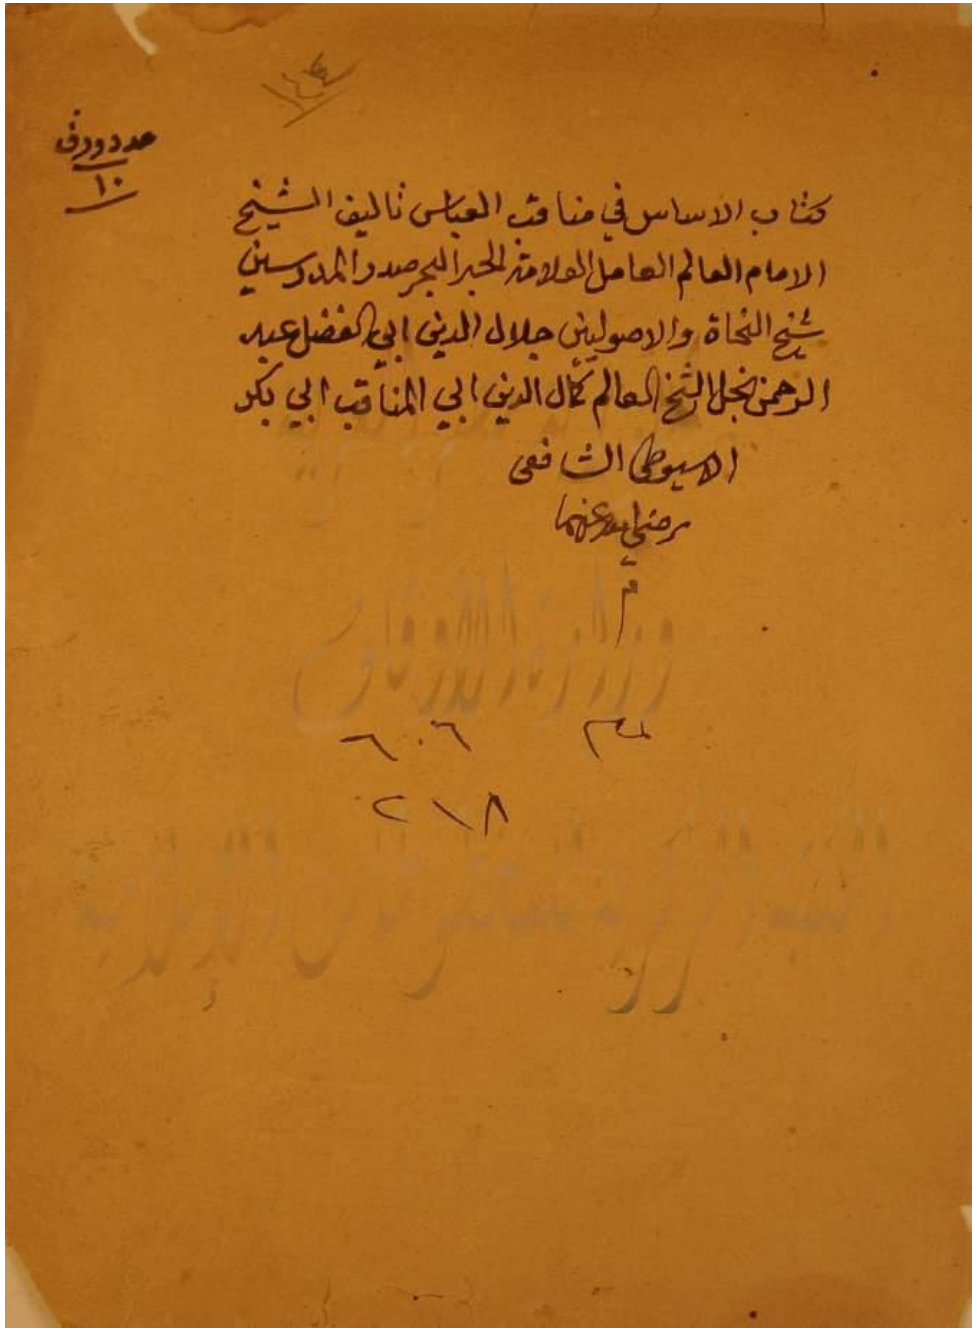 عدد ورق
١٠
كتاب الاساس في مناقب العباس تاليف الشيخ
الامام العالم العامل العلامة الحبر البحر صدر المدرسين
شيخ النحاة والاصوليين جلال الدين ابي الفضل عبد
الرحمن نجل الشيخ العالم كمال الدين ابي المناقب ابي بكر
الاسيوطي الشافعي
رضي الله عنهما
م
وزارة الاوقاف
٦٠٦
٢١٨